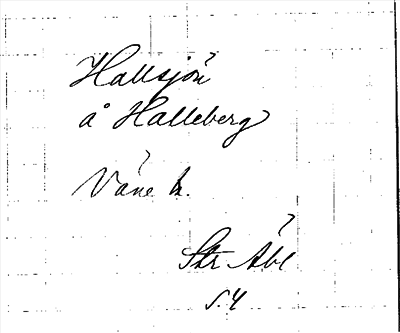 Hallsjön
å Halleberg
Väne h.
Str Äbl
s. 4